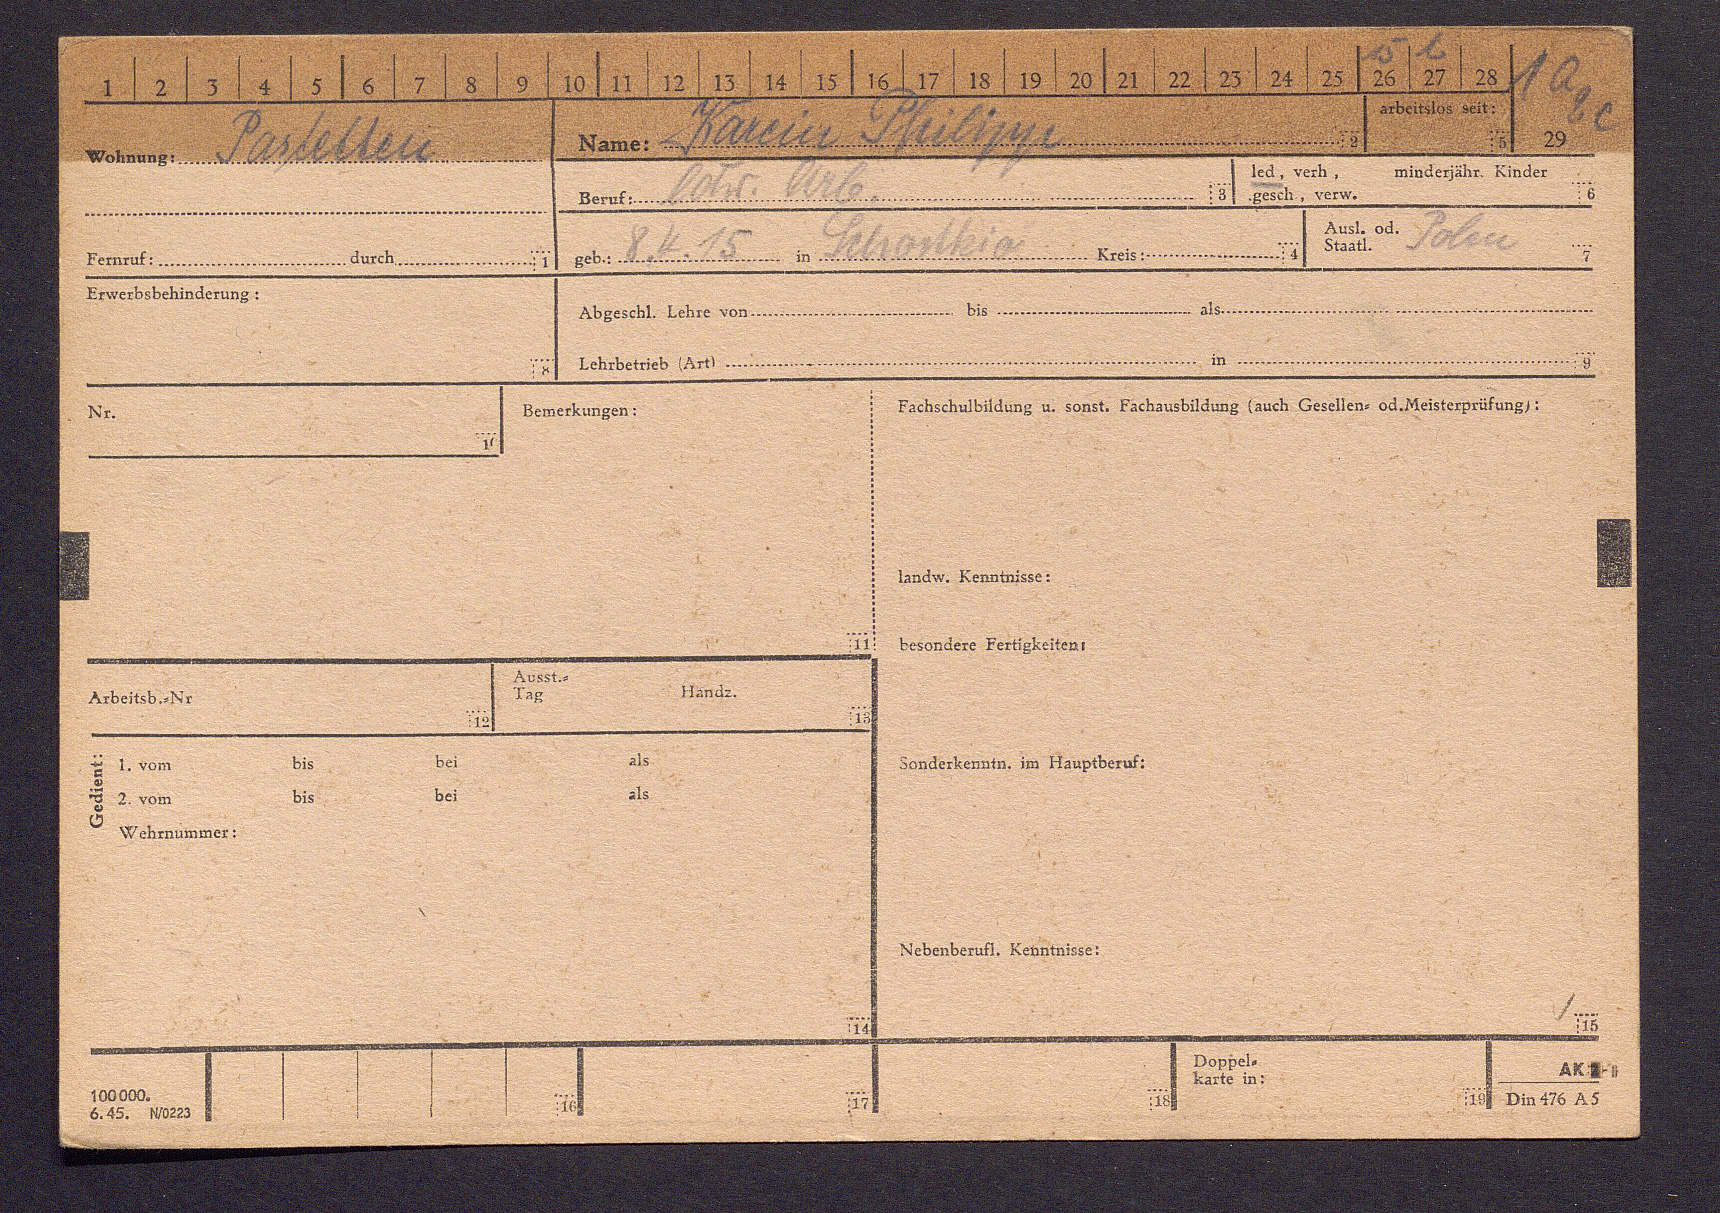 1 2 3 4 5 6 7 8 9 10 11 12 13 14 15 16 17 18 19 20 21 22 23 24 25 26 27 28
arbeitslos seit: 5
29
Wohnung: Pastetten
Name: Karein Philipp 2
Beruf: Arb. 3
led, verh, minderjähr. Kinder
gesch, verw. 6
Fernruf: durch 1
geb.: 8.4.15 in Kreis: 4
Ausl. od. Staatl. Polen 7
Erwerbsbehinderung: 8
Abgeschl. Lehre von bis als
Lehrbetrieb (Art) in 9
Nr.
Bemerkungen: 11
Fachschulbildung u. sonst. Fachausbildung (auch Gesellen= od.Meisterprüfung):
landw. Kenntnisse:
besondere Fertigkeiten:
Arbeitsb.=Nr 12
Ausst.=
Tag Handz. 13
Gedient:
1. vom bis bei als
2. vom bis bei als
Wehrnummer:
14
Sonderkenntn. im Hauptberuf:
Nebenberufl. Kenntnisse:
15
100000.
6.45. N/0223
16 17 18
Doppel=
karte in: 19
AK
Din 476 A5